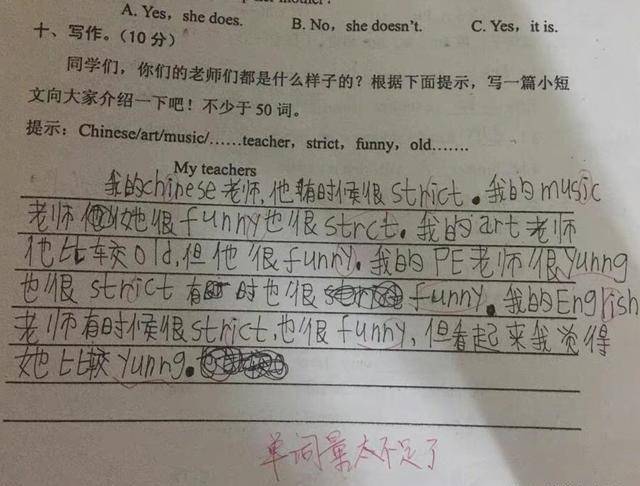 A. Yes, she does. B. No, she doesn't. C. Yes, it is.
十、写作。(10 分)
同学们，你们的老师们都是什么样子的？根据下面提示，写一篇小短
文向大家介绍一下吧！不少于 50 词。
提示：Chinese/art/music/……teacher，strict，funny，old…….
My teachers
我的chinese 老师,他有时候很 strict。我的 music
老师 她很 funny也很 strct. 我的 art 老师
他比较 old,但他很 funny. 我的 PE 老师很 Yunng
也很 strict 有时也很 funny. 我的 English
老师有时候很 strict,也很 funny, 但看起来我觉得
她比较 Yunng.
单词量太不足了